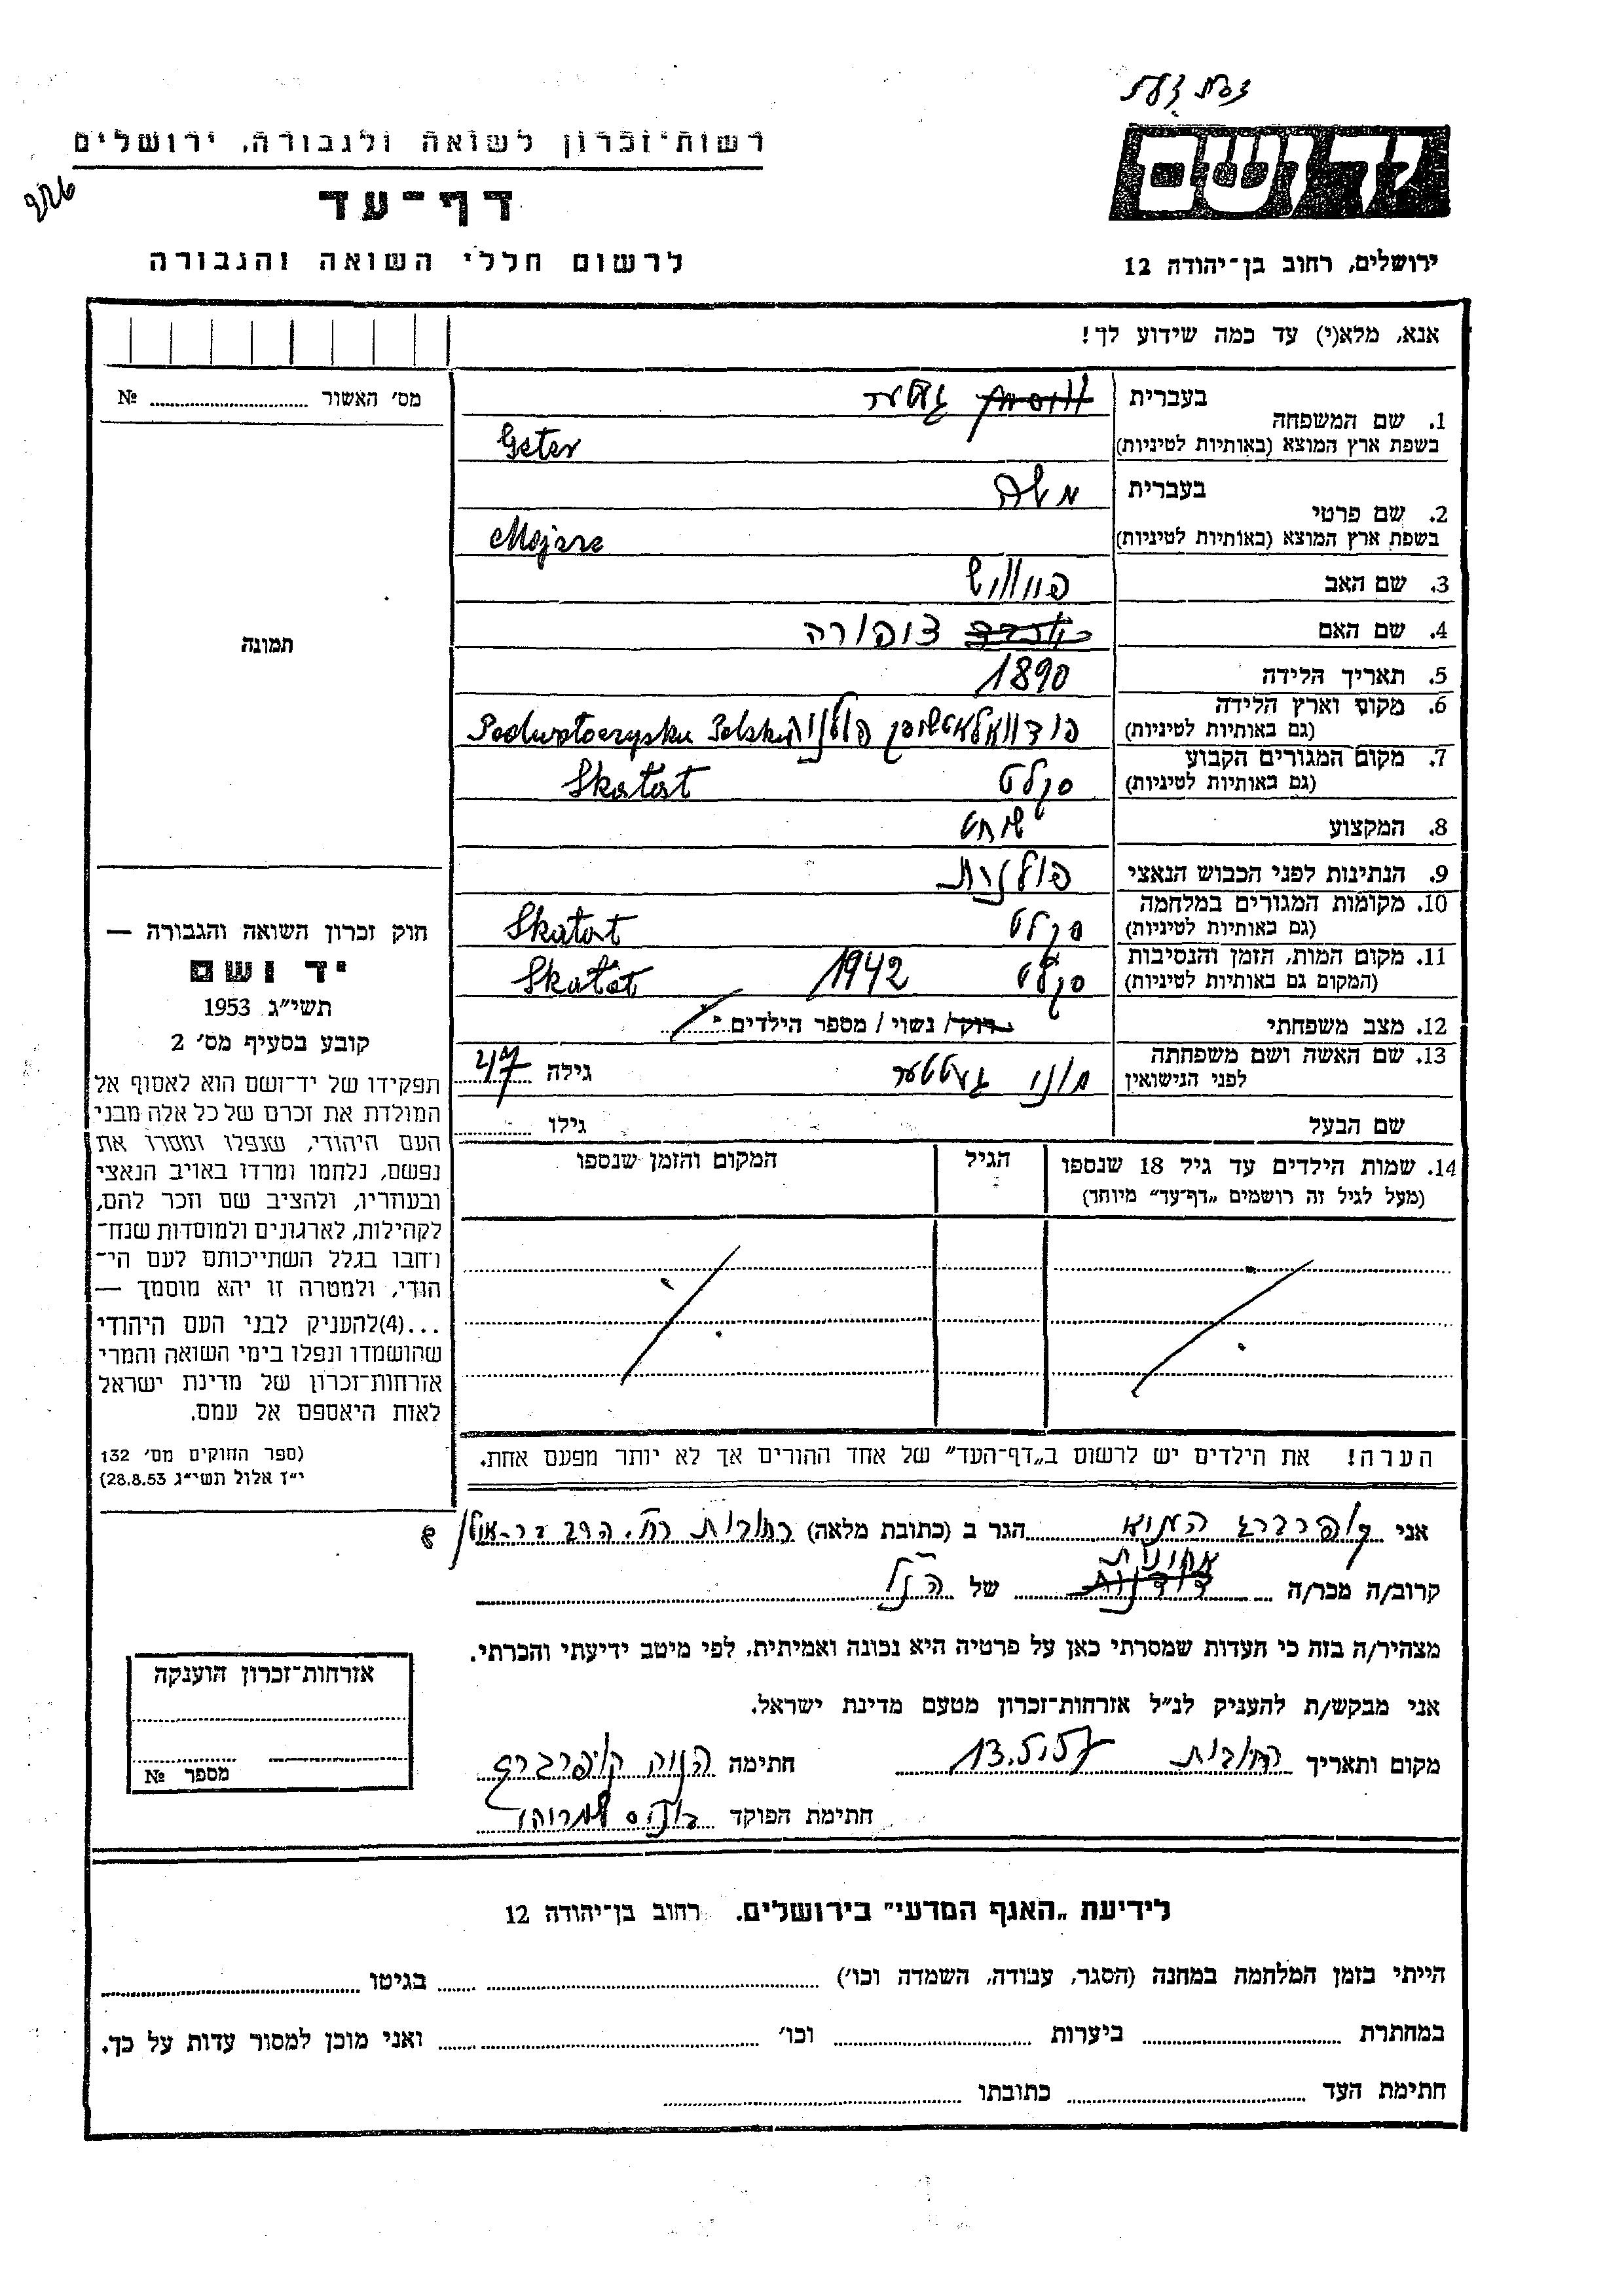 רשות-זכרון לשואה ולגבורה, ירושלים
ידושם
דף-עד
לרשום חללי השואה והגבורה
ירושלים, רחוב בן-יהודה 12
אנא, מלא(י) עד כמה שידוע לך!
מס׳ האשור № 
1. שם המשפחה
בעברית געטער
בשפת ארץ המוצא (באותיות לטיניות) Geter
2. שם פרטי
בעברית משה
בשפת ארץ המוצא (באותיות לטיניות) Mojsze
3. שם האב פייוויש
4. שם האם צופורה
5. תאריך הלידה 1890
6. מקום וארץ הלידה
(גם באותיות לטיניות) Podwołoczyska Polska
7. מקום המגורים הקבוע סקלט
(גם באותיות לטיניות) Skałat
8. המקצוע שוחט
9. הנתינות לפני הכבוש הנאצי פולנית
10. מקומות המגורים במלחמה סקלט
(גם באותיות לטיניות) Skałat
11. מקום המות, הזמן והנסיבות סקלט 1942
(המקום גם באותיות לטיניות) Skałat
12. מצב משפחתי רוק / נשוי / מספר הילדים
13. שם האשה ושם משפחתה
לפני הנישואין געטטער גילה 47
שם הבעל גילו
14. שמות הילדים עד גיל 18 שנספו
(מעל לגיל זה רושמים „דף-עד” מיוחד)
הגיל
המקום והזמן שנספו
הערה! את הילדים יש לרשום ב„דף-העד” של אחד ההורים אך לא יותר מפעם אחת.
תמונה
חוק זכרון השואה והגבורה —
יד ושם
תשי״ג 1953
קובע בסעיף מס׳ 2
תפקידו של יד-ושם הוא לאסוף אל
המולדת את זכרם של כל אלה מבני
העם היהודי, שנפלו ומסרו את
נפשם, נלחמו ומרדו באויב הנאצי
ובעוזריו, ולהציב שם וזכר להם,
לקהילות, לארגונים ולמוסדות שנח-
רבו בגלל השתייכותם לעם הי-
הודי, ולמטרה זו יהא מוסמך —
...(4)להעניק לבני העם היהודי
שהושמדו ונפלו בימי השואה והמרי
אזרחות-זכרון של מדינת ישראל
לאות היאספם אל עמם.
(ספר החוקים מס׳ 132
י״ז אלול תשי״ג 28.8.53)
אני קופרברג הגר ב (כתובת מלאה) רחובות רח׳ הרב בר-אילן 8
קרוב/ה מכר/ה אחינית של הנ״ל
מצהיר/ה בזה כי העדות שמסרתי כאן על פרטיה היא נכונה ואמיתית, לפי מיטב ידיעתי והכרתי.
אני מבקש/ת להעניק לנ״ל אזרחות-זכרון מטעם מדינת ישראל.
מקום ותאריך רחובות 13.5.57 חתימה קופרברג
חתימת הפוקד
אזרחות-זכרון הוענקה
מספר №
לידיעת „האגף המדעי” בירושלים. רחוב בן-יהודה 12
הייתי בזמן המלחמה במחנה (הסגר, עבודה, השמדה וכו׳) בגיטו
במחתרת ביערות וכו׳ ואני מוכן למסור עדות על כך.
חתימת העד כתובתו